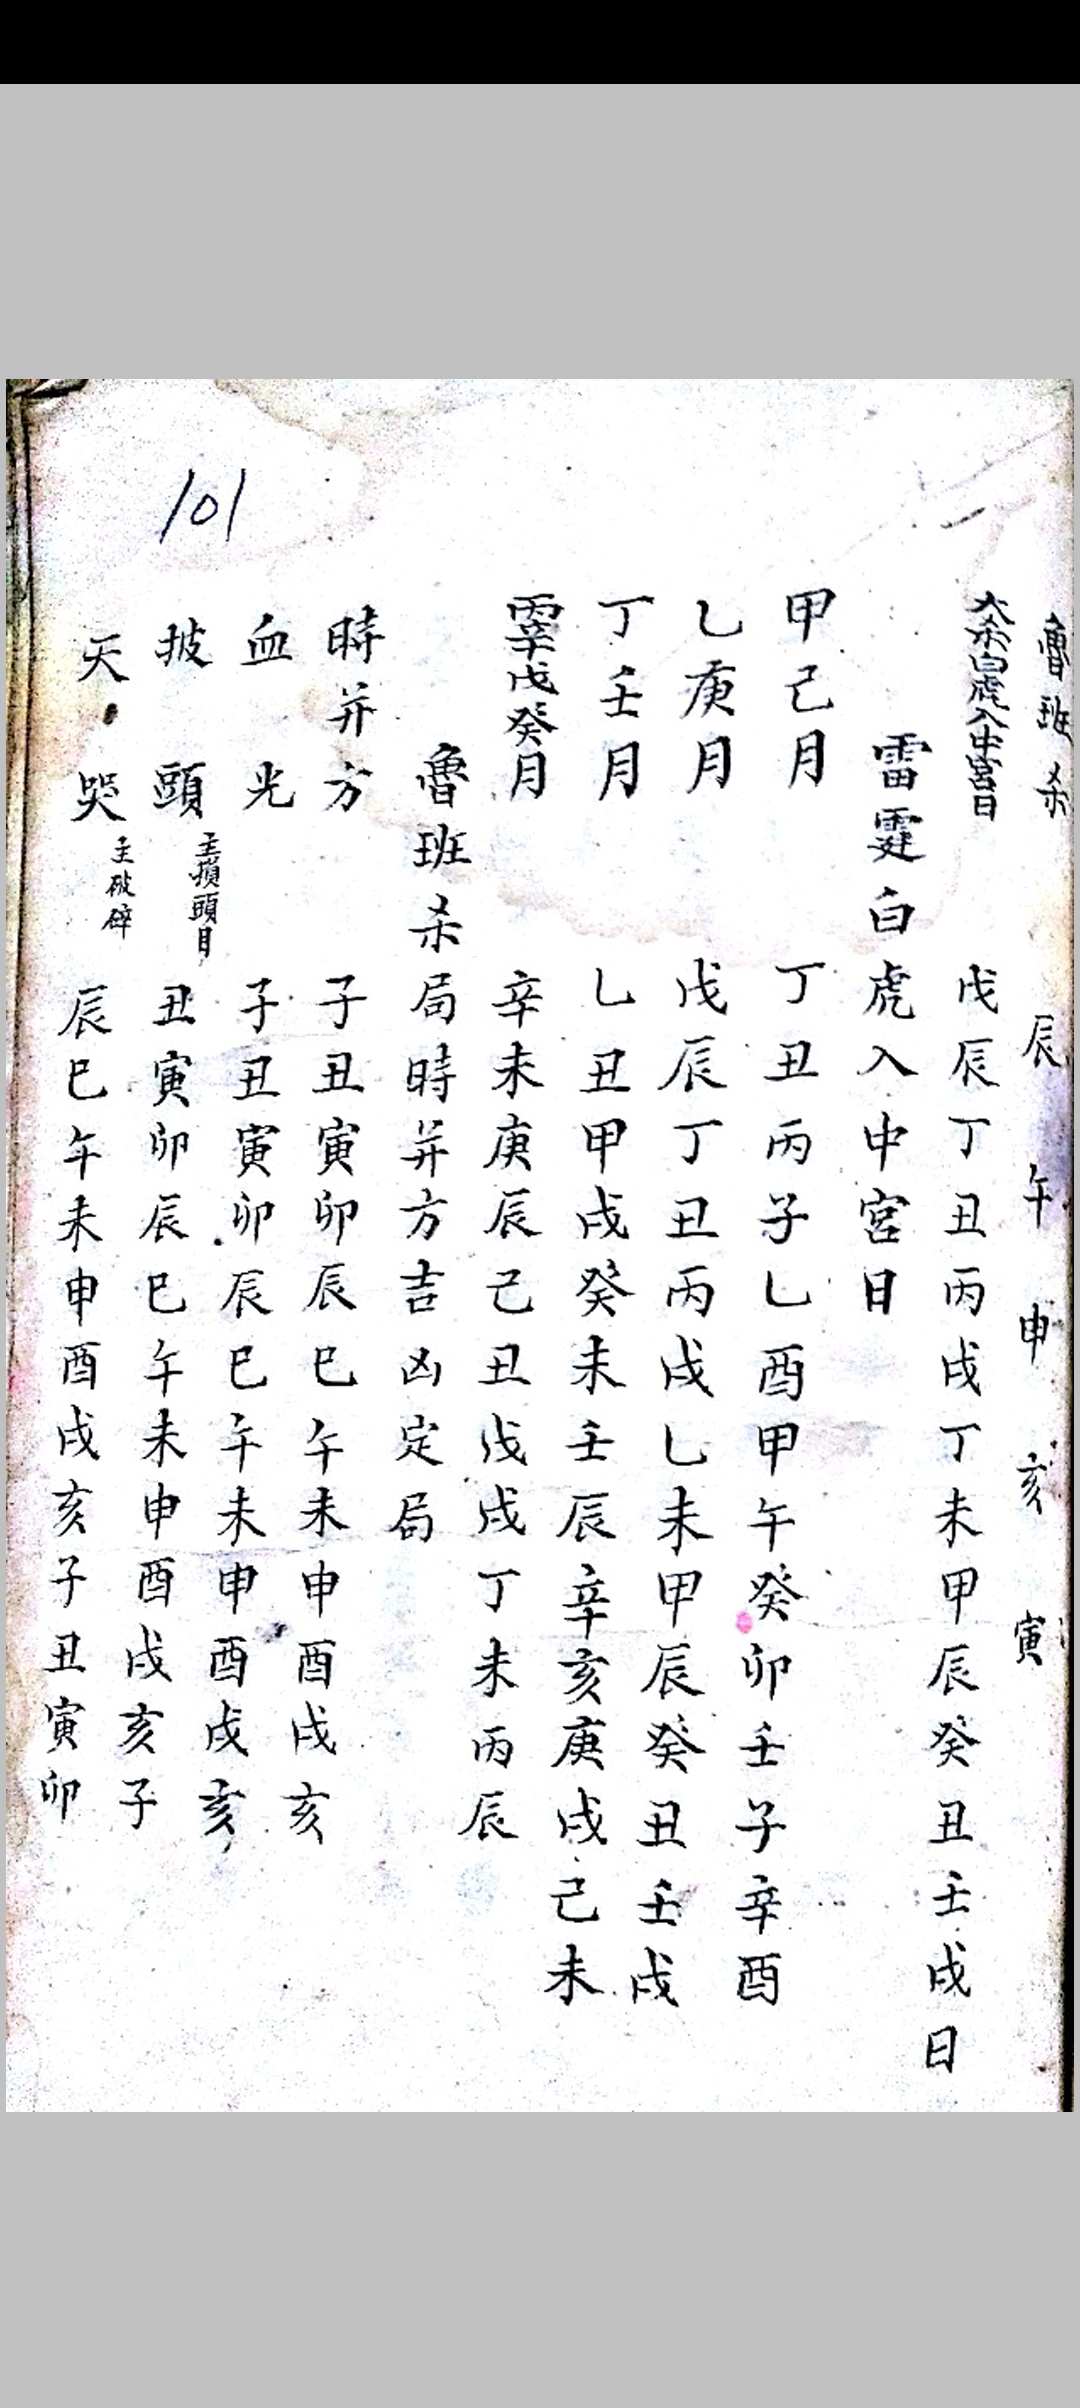 101
魯班杀 辰 午 申 亥 寅
大杀白虎入中宮日 戊辰丁丑丙戌丁未甲辰癸丑壬戌日
雷霆白虎入中宮日
甲己月 丁丑丙子乙酉甲午癸卯壬子辛酉
乙庚月 戊辰丁丑丙戌乙未甲辰癸丑壬戌
丁壬月 乙丑甲戌癸未壬辰辛亥庚戌己未
戊癸月 辛未庚辰己丑戊戌丁未丙辰
魯班杀局時并方吉凶定局
時并方 子丑寅卯辰巳午未申酉戌亥
血光 子丑寅卯辰巳午未申酉戌亥
披頭 主損頭目 丑寅卯辰巳午未申酉戌亥子
天哭 主破碎 辰巳午未申酉戌亥子丑寅卯